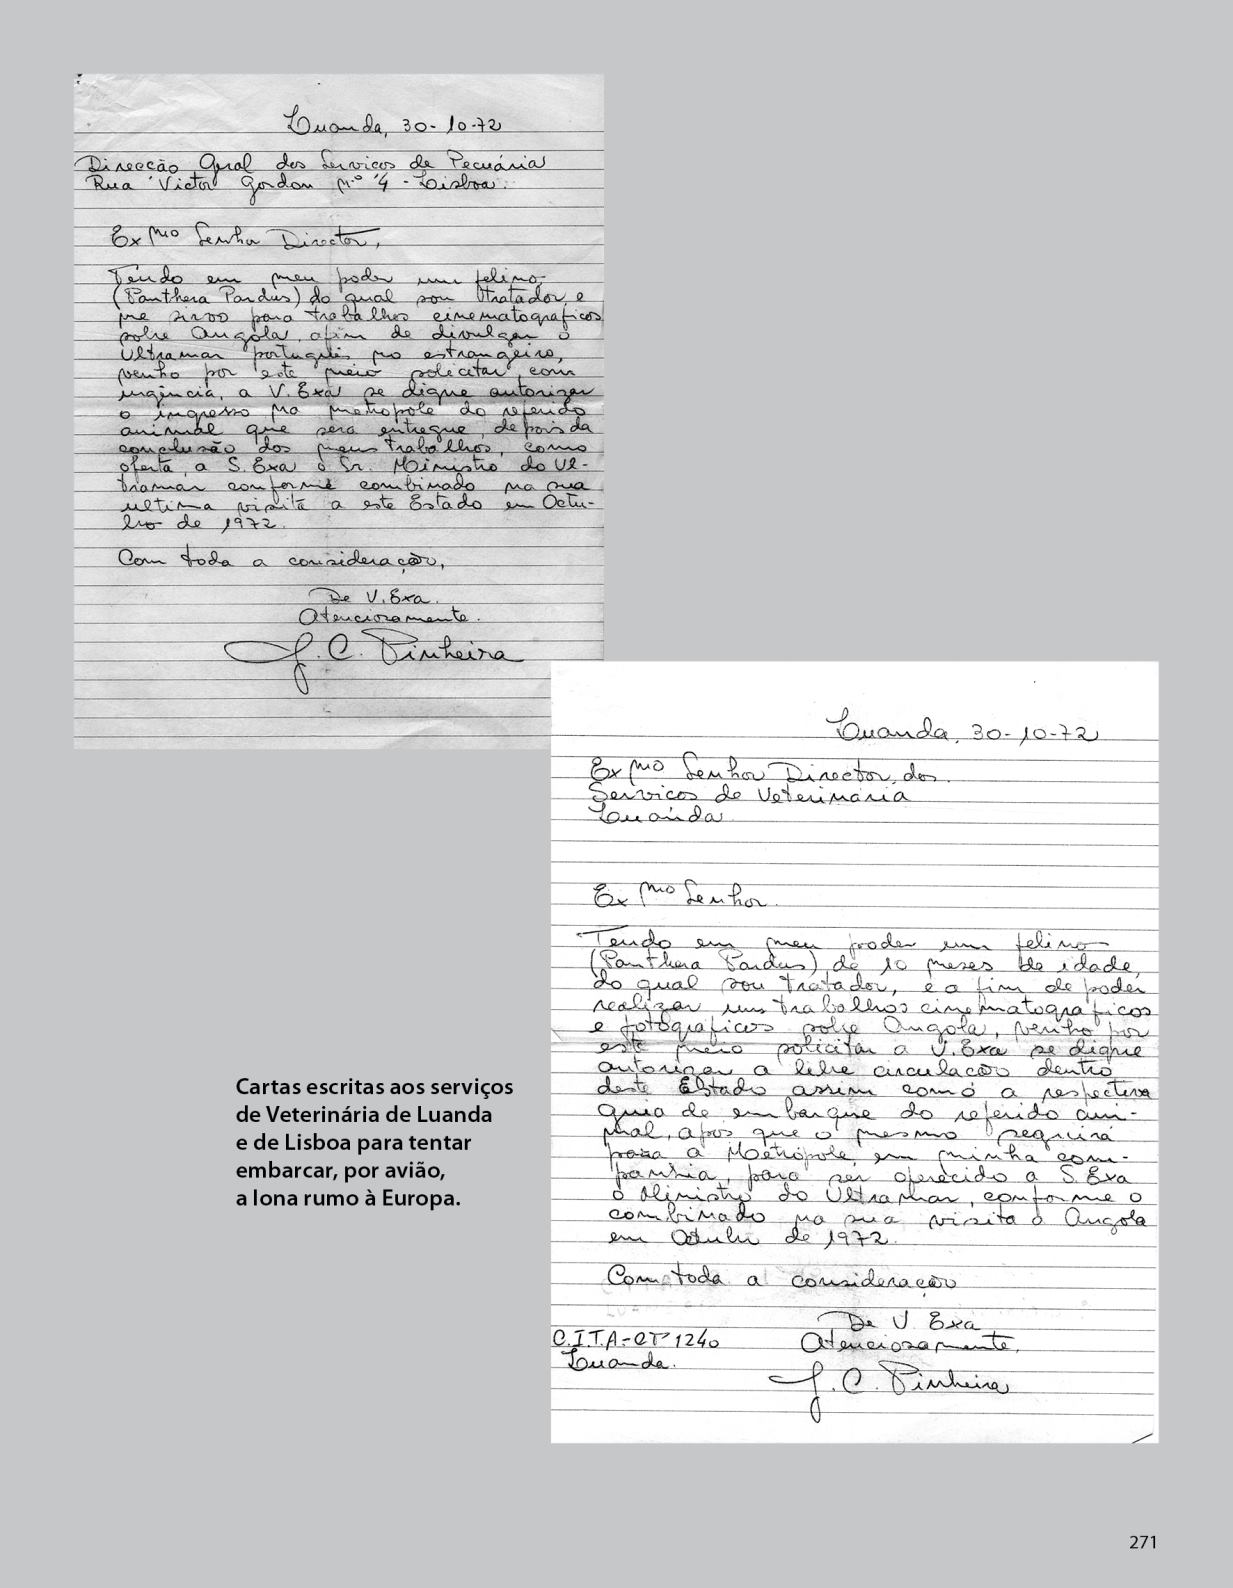 Luanda, 30-10-72
Direcção Geral dos Serviços de Pecuária
Rua Victor Gordon nº 4 - Lisboa.
Exmo Senhor Director,
Tendo em meu poder um felino
(Panthera Pardus) do qual sou tratador, e
me sirvo para trabalhos cinematograficos
sobre Angola, afim de divulgar o
Ultramar português no estrangeiro,
venho por este meio solicitar, com
urgência, a V. Exa se digne autorizar
o ingresso na metropole do referido
animal que será entregue, depois da
conclusão dos meus trabalhos, como
oferta, a S. Exa o Sr. Ministro do Ul-
tramar conforme combinado na sua
ultima visita a este Estado em Octu-
bro de 1972.
Com toda a consideração,
De V. Exa.
Atenciosamente.
J. C. Pinheira
Luanda, 30-10-72
Exmo Senhor Director, dos
Serviços de Veterinária
Luanda
Exmo Senhor
Tendo em meu poder um felino
(Panthera Pardus) de 10 meses de idade,
do qual sou tratador, e a fim de poder
realizar uns trabalhos cinematograficos
e fotograficos sobre Angola, venho por
este meio solicitar a V. Exa se digne
autorizar a libre circulação dentro
deste Estado assim como a respectiva
guia de embarque do referido ani-
mal, após que o mesmo seguirá
para a Metrópole, em minha com-
panhia, para ser oferecido a S. Exa
o Ministro do Ultramar, conforme o
combinado na sua visita a Angola
em de 1972.
Com toda a consideração
De V. Exa
Atenciosamente,
C.I.T.A-CT 1240
Luanda.
J. C. Pinheira
Cartas escritas aos serviços
de Veterinária de Luanda
e de Lisboa para tentar
embarcar, por avião,
a Iona rumo à Europa.
271